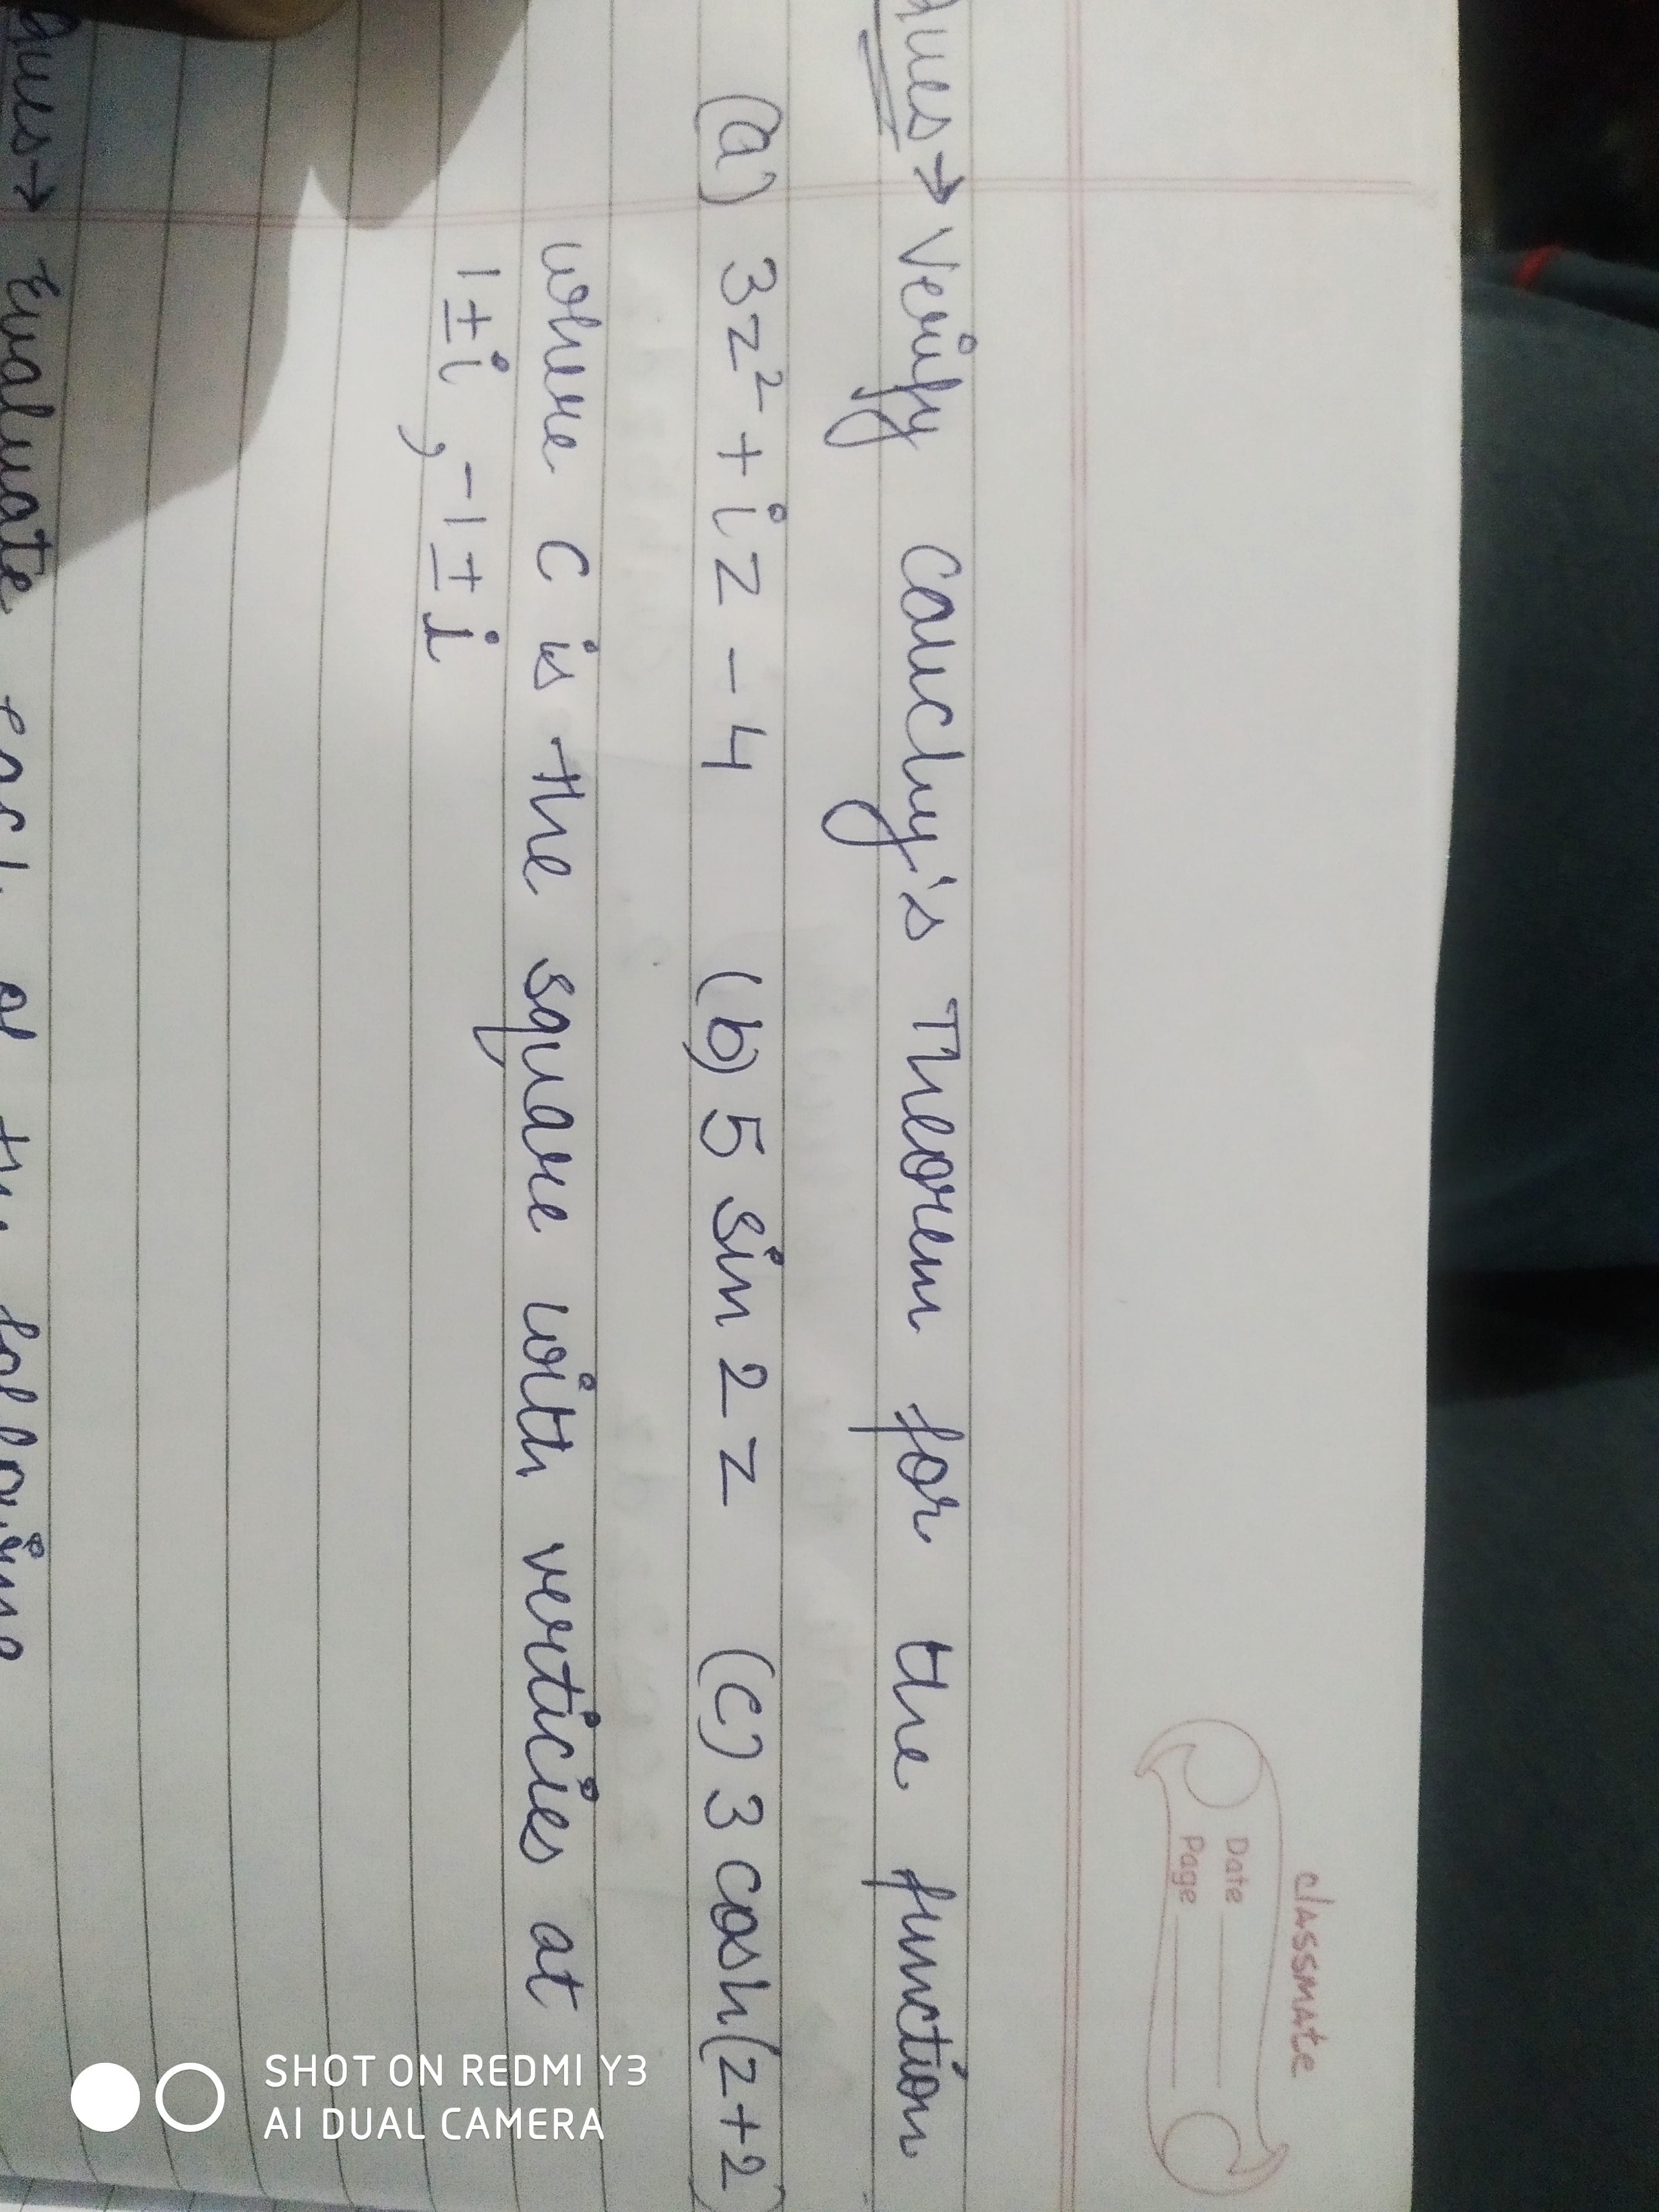 classmate
Date
Page
ques→ Verify Cauchy's Theorem for the function
(a) 3z² + iz - 4 (b) 5 sin 2z (c) 3 cosh(z+2)
where C is the square with verticies at
1±i, -1±i
ques→ Evaluate each of the following
SHOT ON REDMI Y3
AI DUAL CAMERA